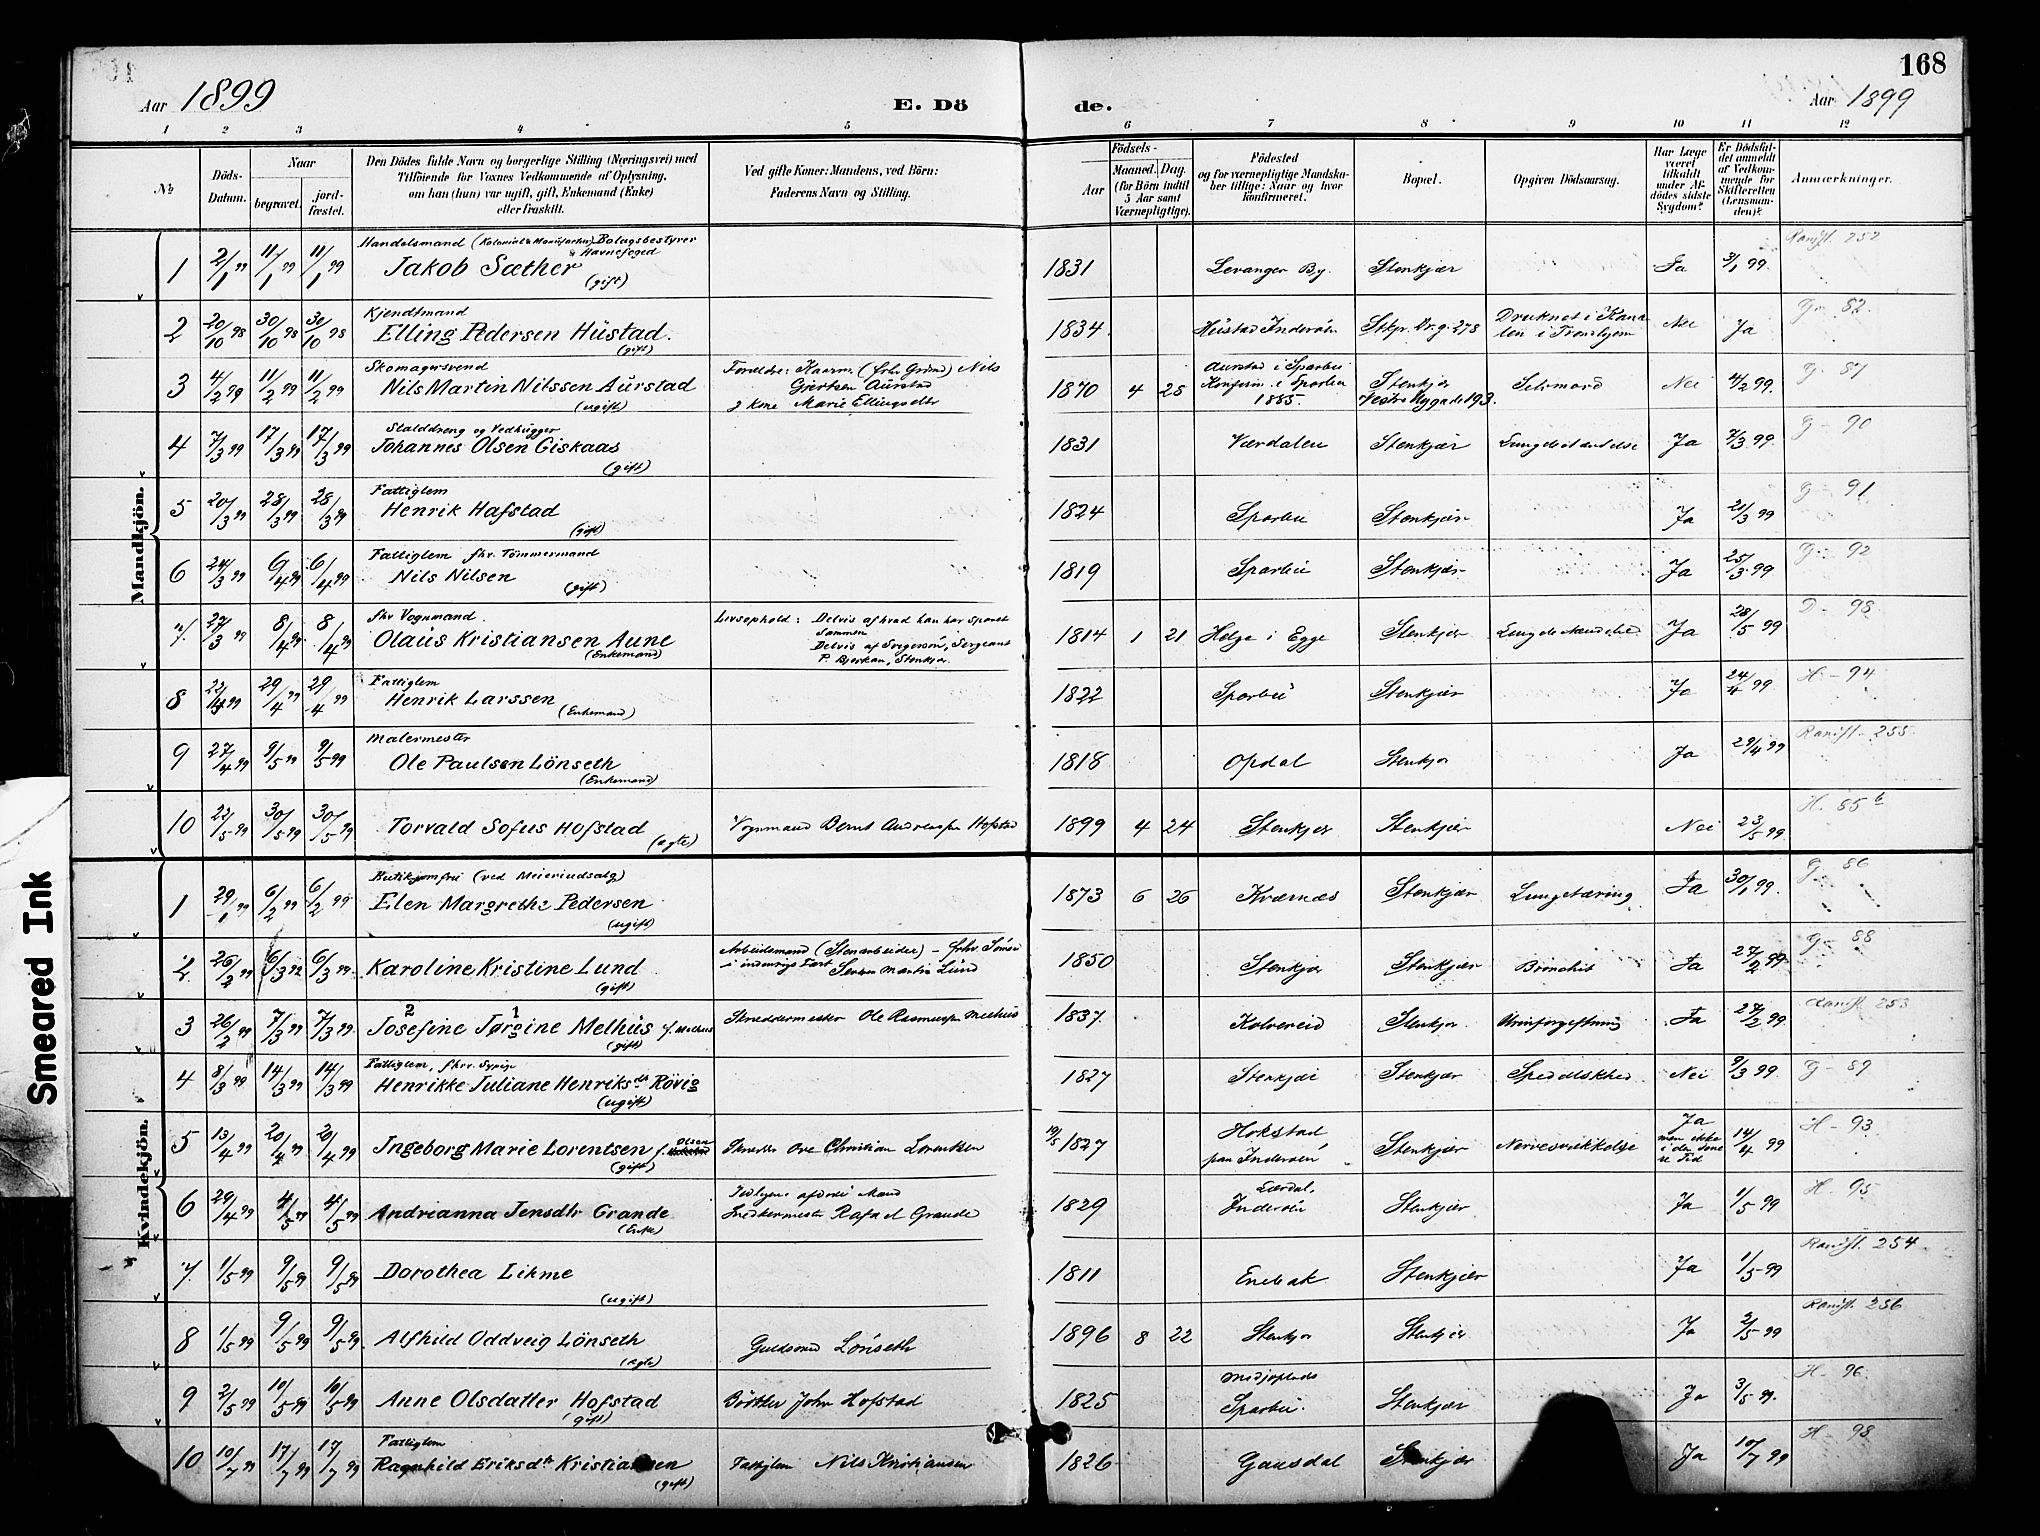 168
Aar 1899 E. Dö de. Aar 1899
1 2 3 4 5 6 7 8 9 10 11 12
№
Döds-Datum.
Naar
begravet.
jord-fæstet.
Den Dödes fulde Navn og borgerlige Stilling (Næringsvei) med
Tilföiende for Voxnes Vedkommende af Oplysning,
om han (hun) var ugift, gift, Enkemand (Enke)
eller fraskilt.
Ved gifte Koner: Mandens, ved Börn:
Faderens Navn og Stilling.
Födsels-
Aar
Maaned. Dag.
(for Börn indtil
5 Aar samt
Værnepligtige).
Födested
og for værnepligtige Mandska-
ber tillige: Naar og hvor
konfirmeret.
Bopæl.
Opgiven Dödsaarsag.
Har Læge
været
tilkaldt
under Af-
dödes sidste
Sygdom?
Er Dödsfal-
det anmeldt
af Vedkom-
mende for
Skifteretten
(Lensman-
den)?
Anmærkninger.
Mandkjön.
Handelsmand (Kolonial & Manufactur) Bolagsbestyrer
& Havnefoged
1 2/1 99 11/1 99 11/1 99 Jakob Sæther (gift) 1831 Levanger By. Stenkjær Ja 3/1 99. Ranist. 252
Kjendtmand
2 20/10 98 30/10 98 30/10 98 Elling Pedersen Hüstad. (gift) 1834. Hüstad Inderöen Stkjr. Nr. g. 278 Druknet i Kana-
len i Trondhjem Nei Ja G- 82.
Skomagersvend
3 4/2 99 11/2 99 11/2 99 Nils Martin Nilssen Aürstad (ugift) Forældre: Kaarm. (frhv Grind) Nils
Gjertsen Aürstad
& Kone Marie Ellingsdtr 1870 4 28 Aurstad i Sparbu
Konfirm. i Sparbu
1885. Stenkjær
Vestre Nygade 193. Selvmord Nei 4/2 99. G- 87
Stalddreng og Vedhugger
4 7/3 99 17/3 99 17/3 99 Johannes Olsen Giskaas (gift) 1831 Værdalen Stenkjær Lungebetændelse Ja 7/3 99. G- 90
Fattiglem
5 20/3 99 28/3 99 28/3 99 Henrik Hafstad (gift) 1824 Sparbu Stenkjær Ja 21/3 99 G- 91
Fattiglem fhv. Tömmermand
6 24/3 99 6/4 99 6/4 99 Nils Nilsen (gift) 1819 Sparbu Stenkjær Ja 25/3 99 G- 92
fhv Vognmand.
7. 27/3 99 8/4 99 8/4 99 Olaüs Kristiansen Aune (Enkemand) Livsophold: Delvis af hvad han har sparet
sammen
Delvis af Svigersön, Sergeant
P. Bjerkan, Stenkjær. 1814 1 21 Helge i Egge Stenkjær Lungebetændelse Ja 28/5 99 D- 98.
Fattiglem
8 22/4 99 29/4 99 29/4 99 Henrik Larssen (Enkemand) 1822 Sparbü Stenkjær Ja 24/4 99 H- 94
Malermester
9 27/4 99 9/5 99 9/5 99 Ole Paulsen Lönseth (Enkemand) 1818 Opdal Stenkjær Ja 29/4 99 Ranist- 255
10 22/5 99 30/5 99 30/5 99 Torvald Sofus Hofstad (ægte) Vognmand Bernt Andreassen Hofstad 1899 4 24 Stenkjær Stenkjær Nei 23/5 99 H. 85 b
Kvindekjön.
Butikjomfru (ved Meieriudsalg)
1 29/1 99 6/2 99 6/2 99 Elen Margrethe Pedersen (ugift) 1873 6 26 Kværnæs Stenkjær Lungetæring Ja 30/1 99. G- 86
2 26/2 99 6/3 99 6/3 99. Karoline Kristine Lund (gift) Arbeidsmand (Stenarbeider) - frhv Sömand
i indenrigs Fart Martin Lund 1850 Stenkjær Stenkjær Bronchit Ja 27/2 99 G- 88
3 26/2 99 7/3 99 7/3 99 Josefine Jørgine Melhüs f. Melhus (gift) 2 1 Skræddermester Ole Rasmussen Melhüs 1837. Kolvereid Stenkjær. Urinforgiftning Ja 27/2 99. Ranist 253
Fattiglem, fhv. Sypige
4 8/3 99 14/3 99 14/3 99 Henrikke Juliane Henriksdtr Rövig (ugift) 1827 Stenkjær Stenkjær Spedalskhed Nei 9/3 99. G- 89
5 13/4 99 20/4 99 20/4 99 Ingeborg Marie Lorentsen f. Olsen (gift) Skrædder Ove Christian Lorentsen 19/5 1827 Hokstad
paa Inderöen Stenkjær Nervesvækkelse Ja
men ikke
i den sene-
re Tid 14/4 99 H- 93
6 29/4 99 4/5 99 4/5 99 Andrianna Jensdtr Grande (Enke) Tidligere afdöde Mand
Snedkermester Rafael Grande 1829 Lærdal,
Inderöen Stenkjær Ja 1/5 99 H- 95
7. 1/5 99 9/5 99 9/5 99 Dorothea Lihme (ugift) 1811 Enebak Stenkjær Ja 1/5 99 Ranist. 254
8 1/5 99 9/5 99 9/5 99 Alfhild Oddveig Lönseth (ægte) Guldsmed Lönseth 1896 8 22 Stenkjær Stenkjær Ja 2/5 99 Ranist. 256
9 2/5 99 10/5 99 10/5 99 Anne Olsdatter Hofstad (gift) Bödker John Hofstad 1825 Sparbu. Stenkjær Ja 3/5 99. H- 96
Fattiglem
10 10/7 99 17/7 99 17/7 99 Ragnhild Eriksdtr Kristiansen (gift) Fattiglem Nils Kristiansen 1826 Gausdal Stenkjær Ja 10/7 99 H- 98
Smeared Ink